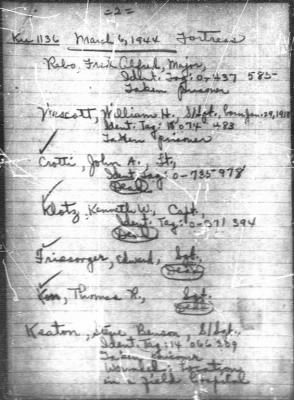 =2=
Ku 1136 March 6, 1944 Fortress
Rabo, Fred Alfred, Major,
Ident. Tag: 0-437 585-
Taken prisoner
Wescott, William H. S/Sgt, born Jan. 29, 1918
Ident. Tag: 18 074 483
Taken prisoner
Crotti, John A., Lt,
Ident. Tag: 0-735-978
Dead
Klotz, Kenneth W., Capt,
Ident. Tag: 0-371 394
Dead
Friesonger, Edward, Sgt.
Dead
Thomas R., Sgt.
Dead
Keaton, Steve Benson, S/Sgt.,
Ident. Tag: 14 066 309
Taken prisoner
Wounded: Location:
in a field hospital